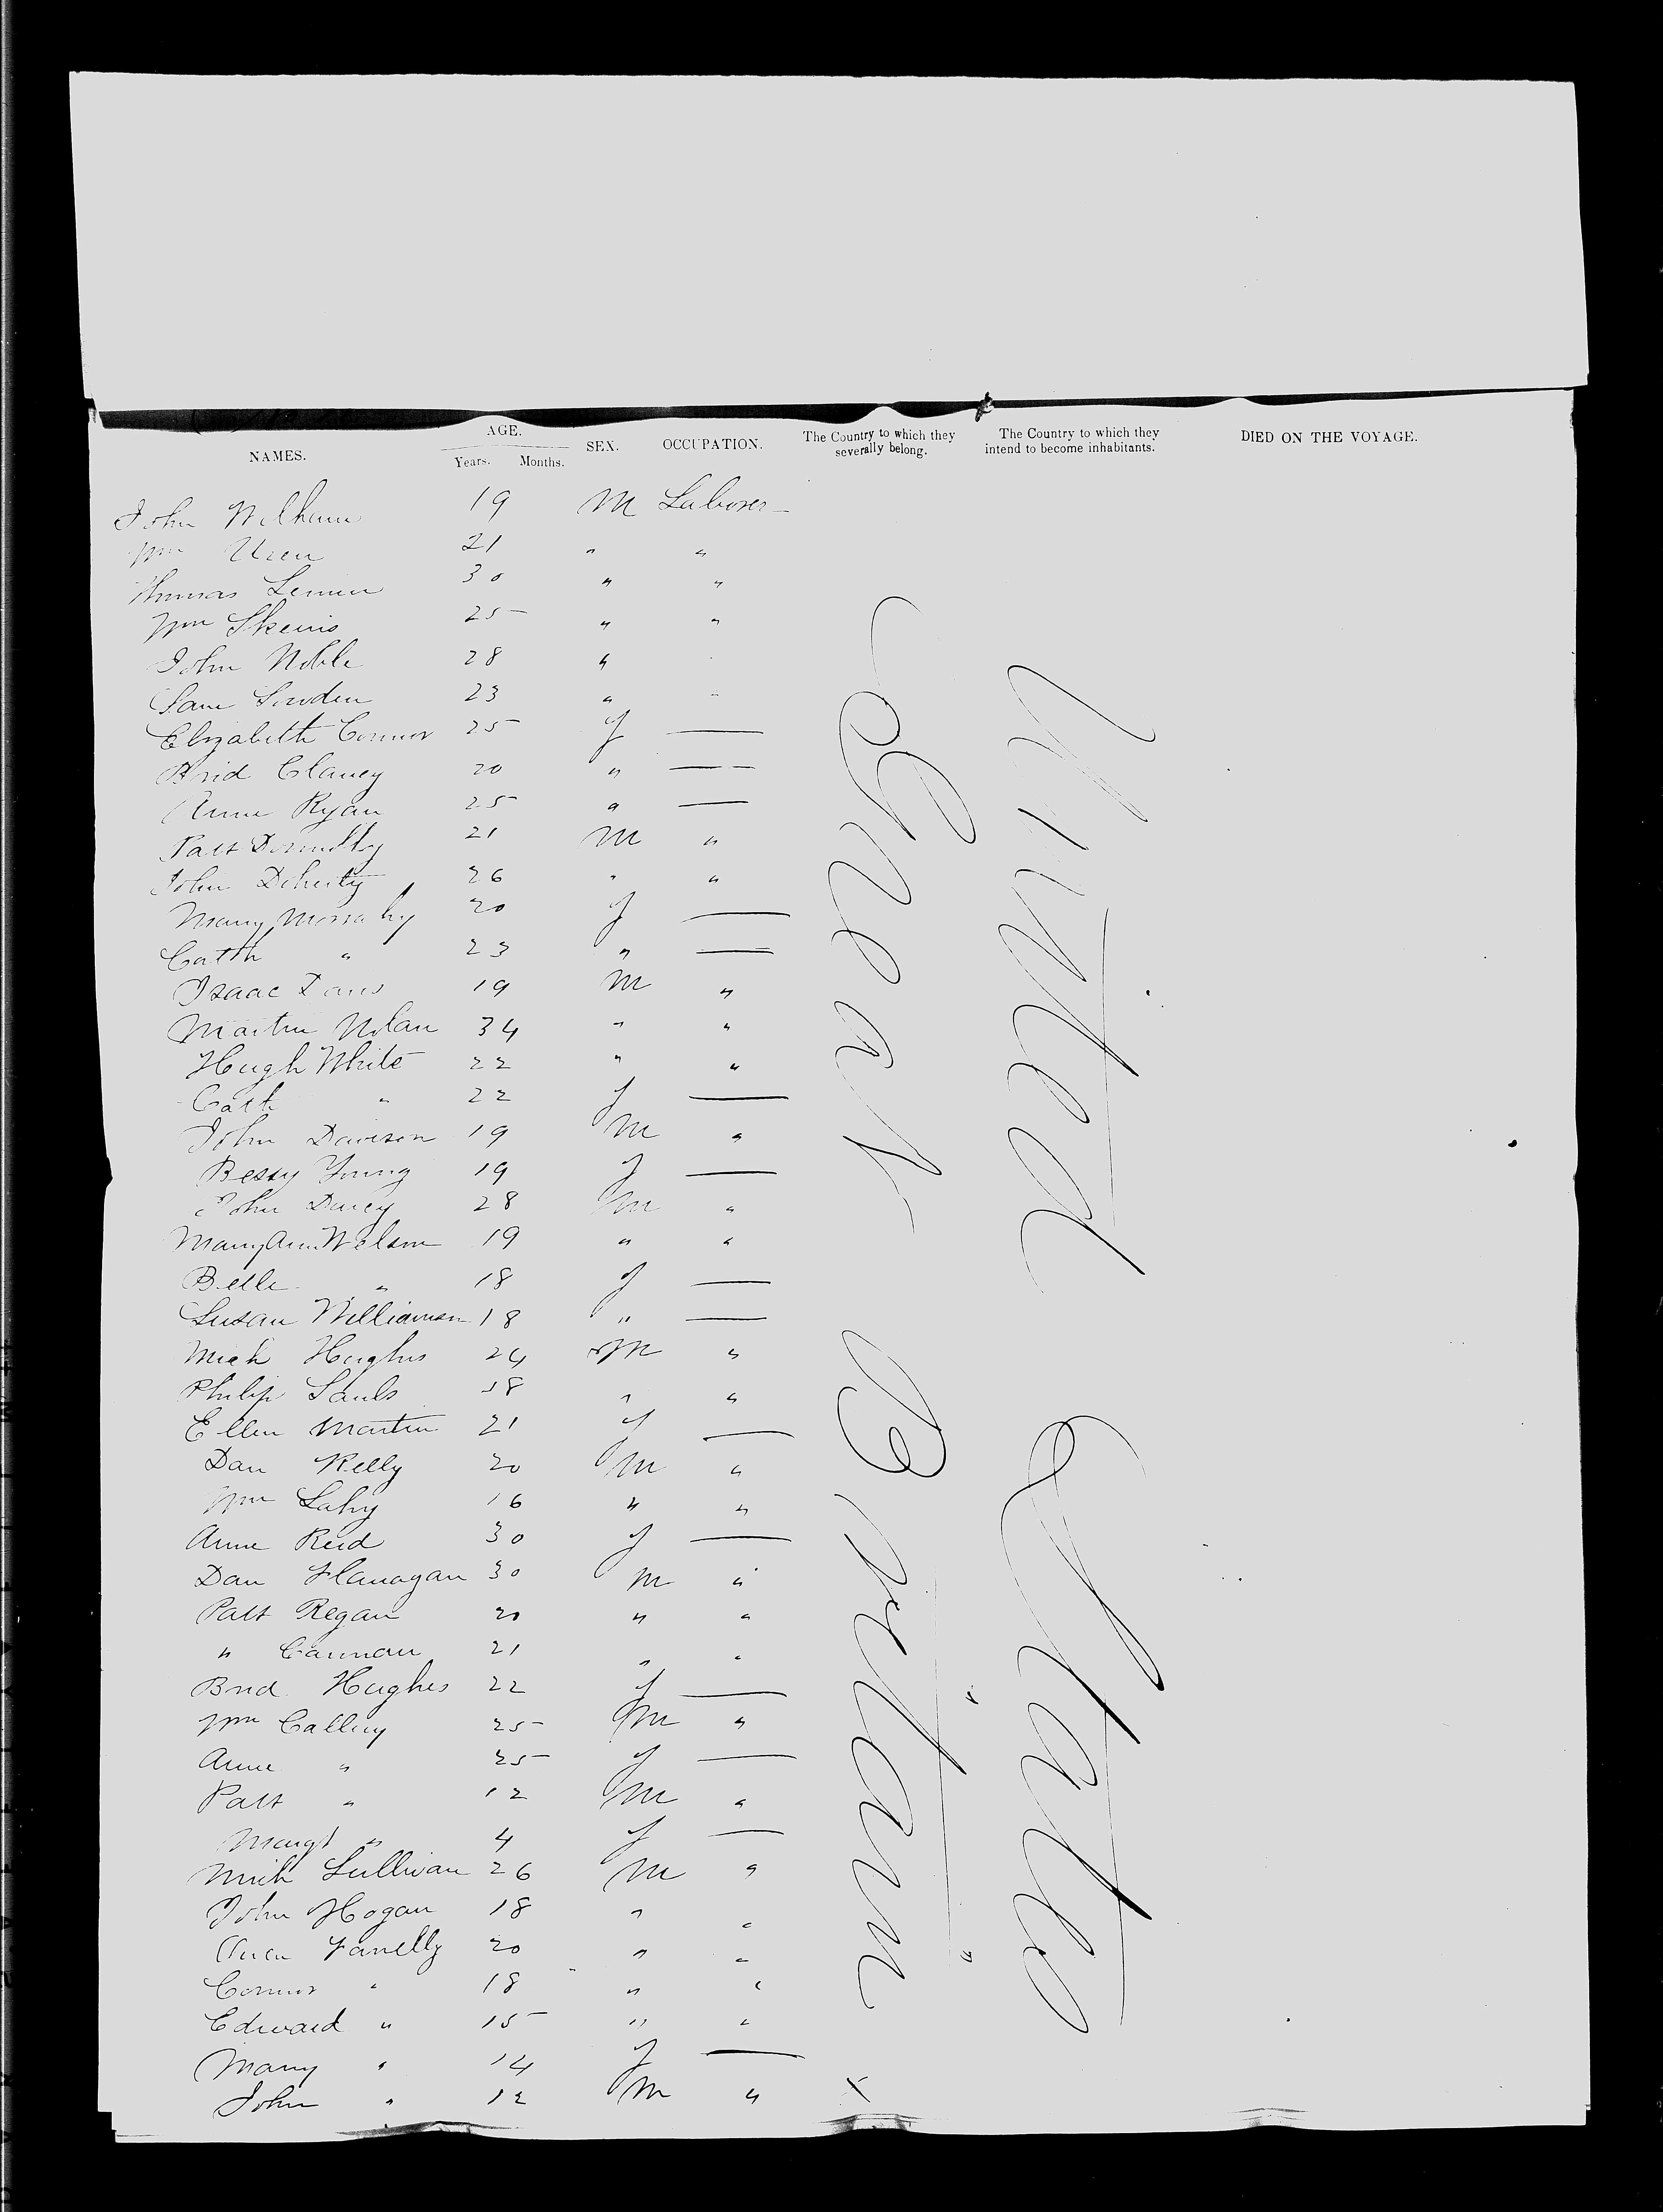 NAMES. AGE. Years. Months. SEX. OCCUPATION. The Country to which they severally belong. The Country to which they intend to become inhabitants. DIED ON THE VOYAGE.
John 19 M Laborer
Wm Uren 21 " "
Thomas 30 " "
Wm Skeins 25 " "
John Noble 28 "
Sam Sowden 23 " "
Elizabeth Connor 25 f —
Brid Clancy 20 " —
Anne Ryan 25 " —
Patt Donnelly 21 M "
John Doherty 26 " "
Mary 20 f —
Cath " 23 " —
Isaac Davis 19 M "
Martin Nolan 34 " "
Hugh White 22 " "
Cath " 22 f —
John Davison 19 M "
Bessy Young 19 f —
John Davey 28 M "
Mary Ann Welson 19 " "
Belle " 18 f —
Susan Williamson 18 " —
Mich Hughes 24 M "
Philip Sauls 18 " "
Ellen Martin 21 f —
Dan Kelly 20 M "
Wm Lahy 16 " "
Anne Reid 30 f —
Dan Flanagan 30 M "
Patt Regan 20 " "
" Cannan 21 " "
Brid Hughes 22 f —
Wm Callery 25 M "
Anne " 25 f —
Patt " 12 M "
Margt " 4 f —
Mich Sullivan 26 M "
John Hogan 18 " "
Owen Farrelly 20 " "
Connor " 18 " "
Edward " 15 " "
Mary " 14 f —
John " 12 M "
Great Britain
United States